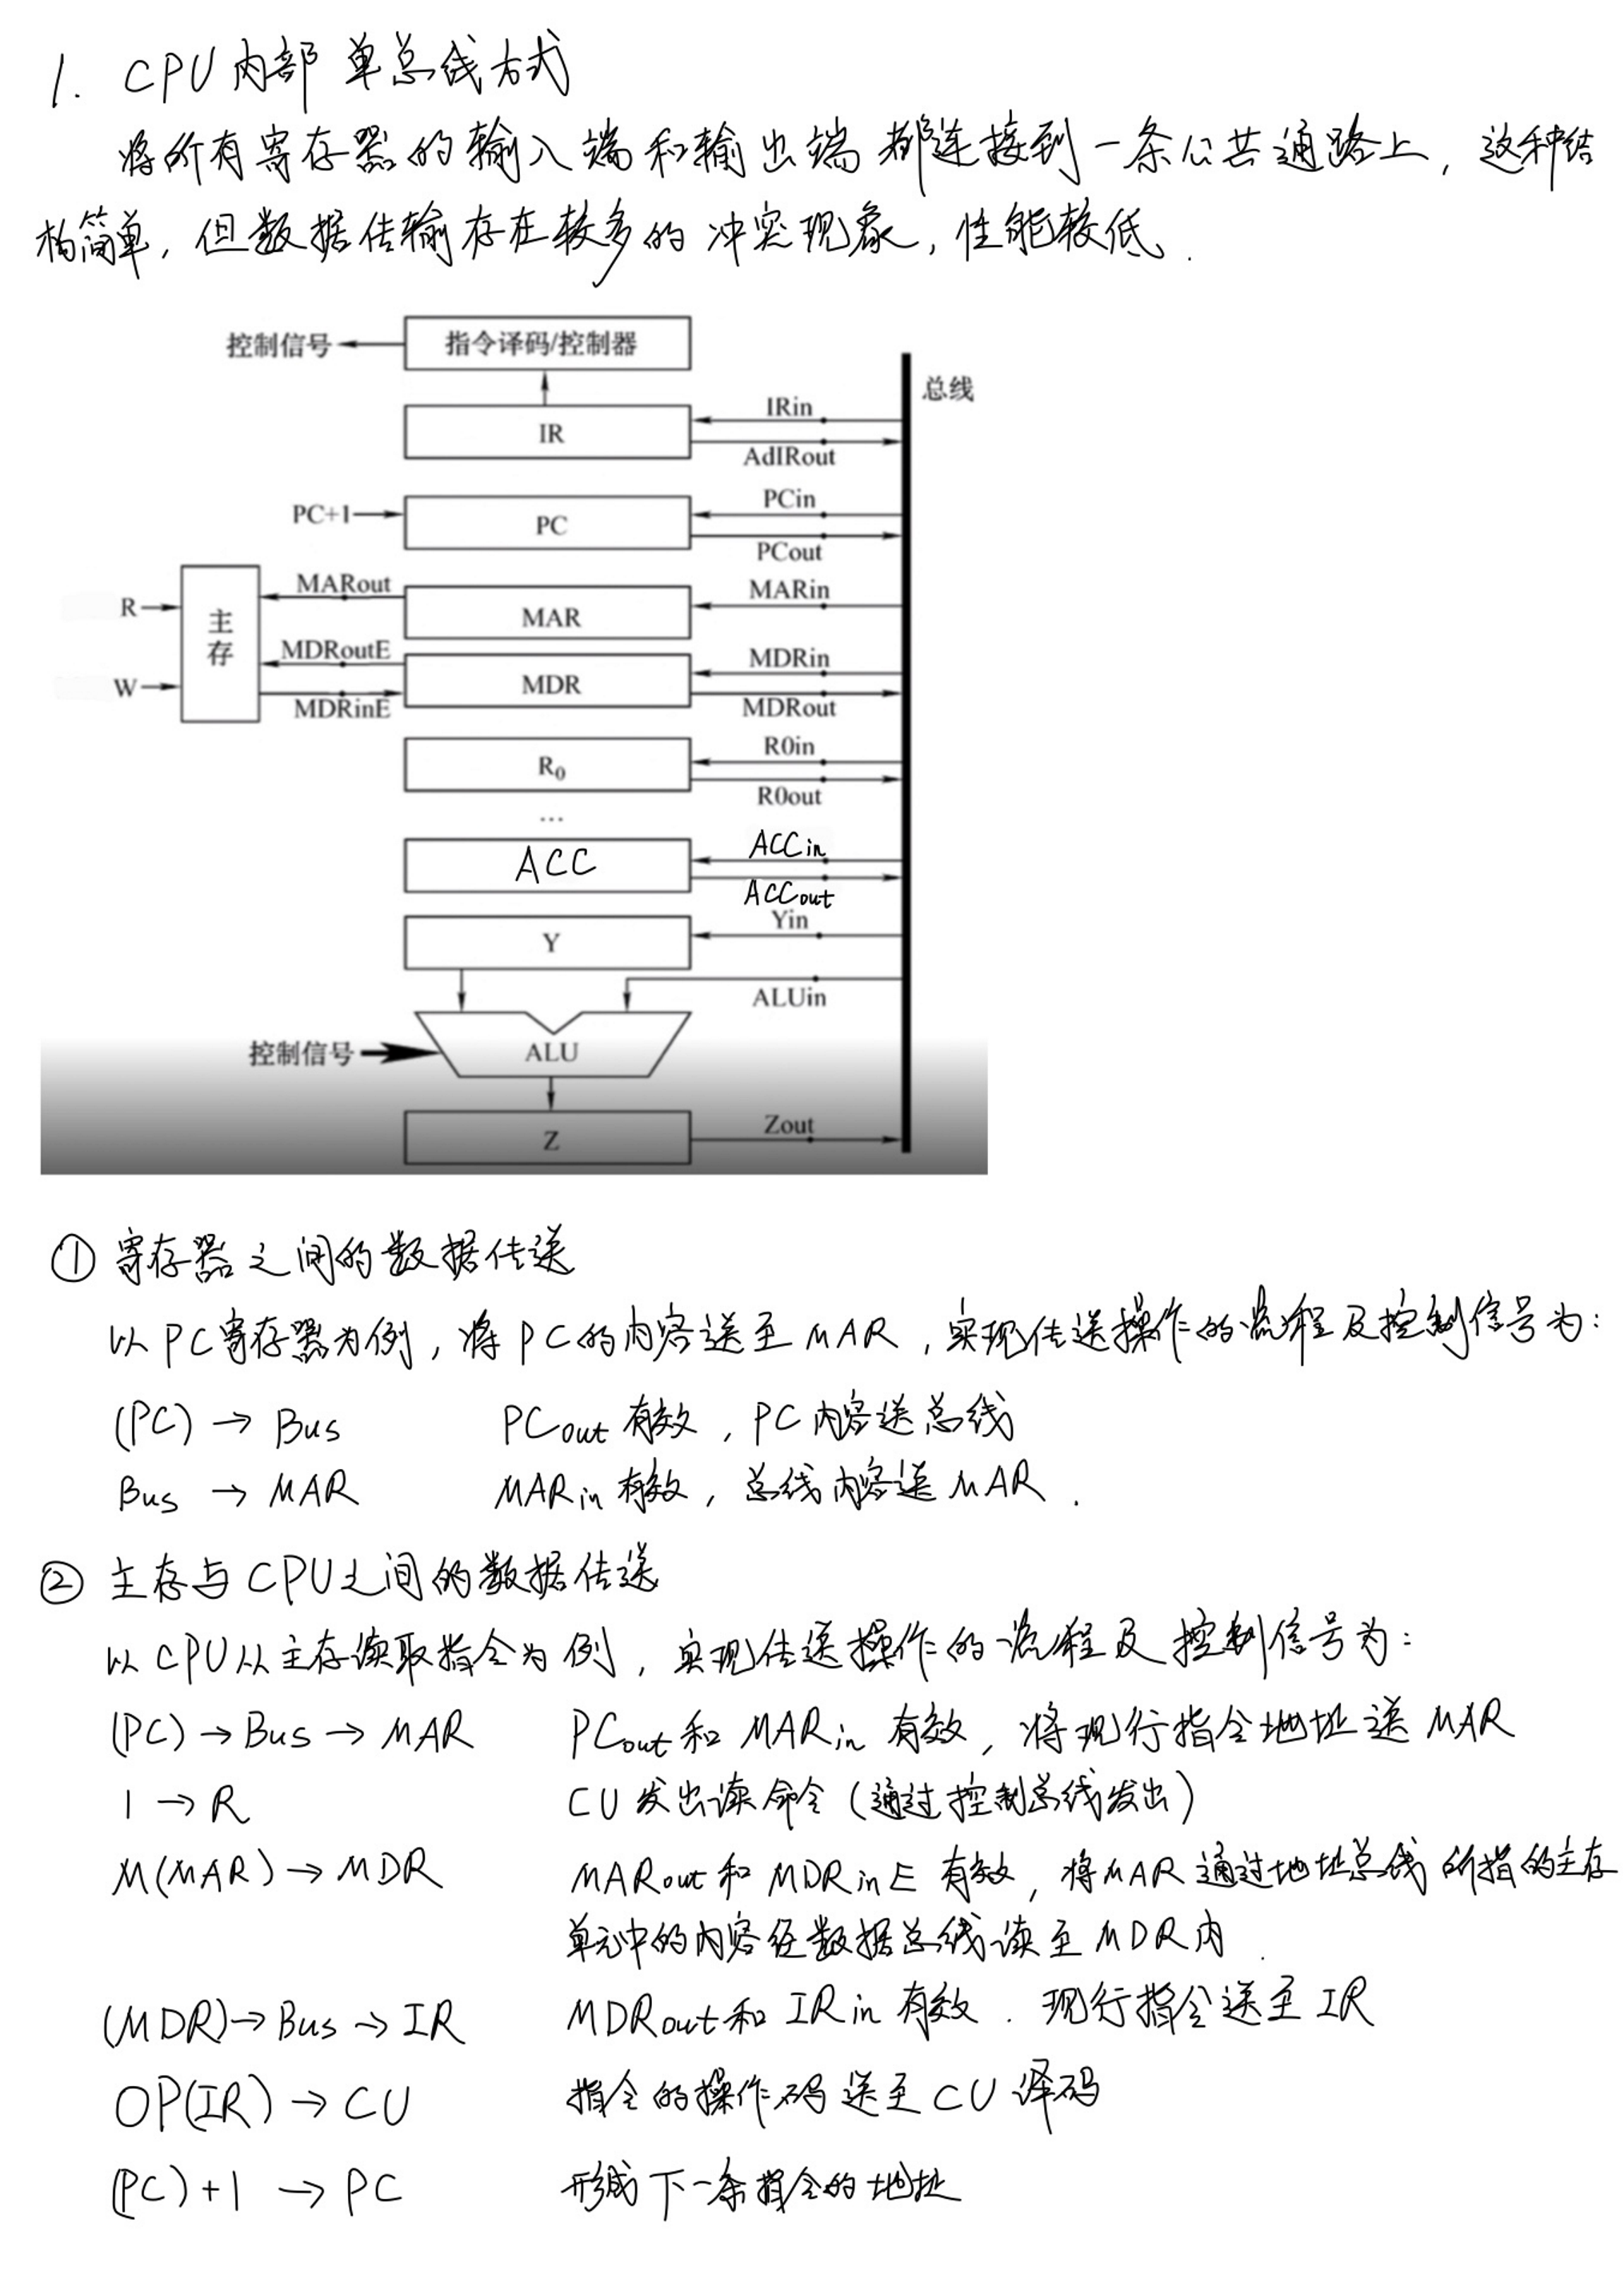 1. CPU内部单总线方式
将所有寄存器的输入端和输出端都连接到一条公共通路上，这种结
构简单，但数据传输存在较多的冲突现象，性能较低.
控制信号
指令译码/控制器
总线
IRin
IR
AdIRout
PCin
PC+1
PC
PCout
MARout
MARin
R
主存
MAR
MDRoutE
MDRin
W
MDR
MDRinE
MDRout
R0in
R₀
R0out
...
ACCin
ACC
ACCout
Yin
Y
ALUin
控制信号
ALU
Zout
Z
① 寄存器之间的数据传送
以PC寄存器为例，将PC的内容送至MAR，实现传送操作的流程及控制信号为：
(PC) → Bus PCout有效，PC内容送总线
Bus → MAR MARin有效，总线内容送MAR.
② 主存与CPU之间的数据传送
以CPU从主存读取指令为例，实现传送操作的流程及控制信号为：
(PC) → Bus → MAR PCout和MARin有效，将现行指令地址送MAR
1 → R CU发出读命令（通过控制总线发出）
M(MAR) → MDR MARout和MDRinE有效，将MAR通过地址总线所指的主存
单元中的内容经数据总线读至MDR内.
(MDR) → Bus → IR MDRout和IRin有效. 现行指令送至IR
OP(IR) → CU 指令的操作码送至CU译码
(PC)+1 → PC 形成下一条指令的地址